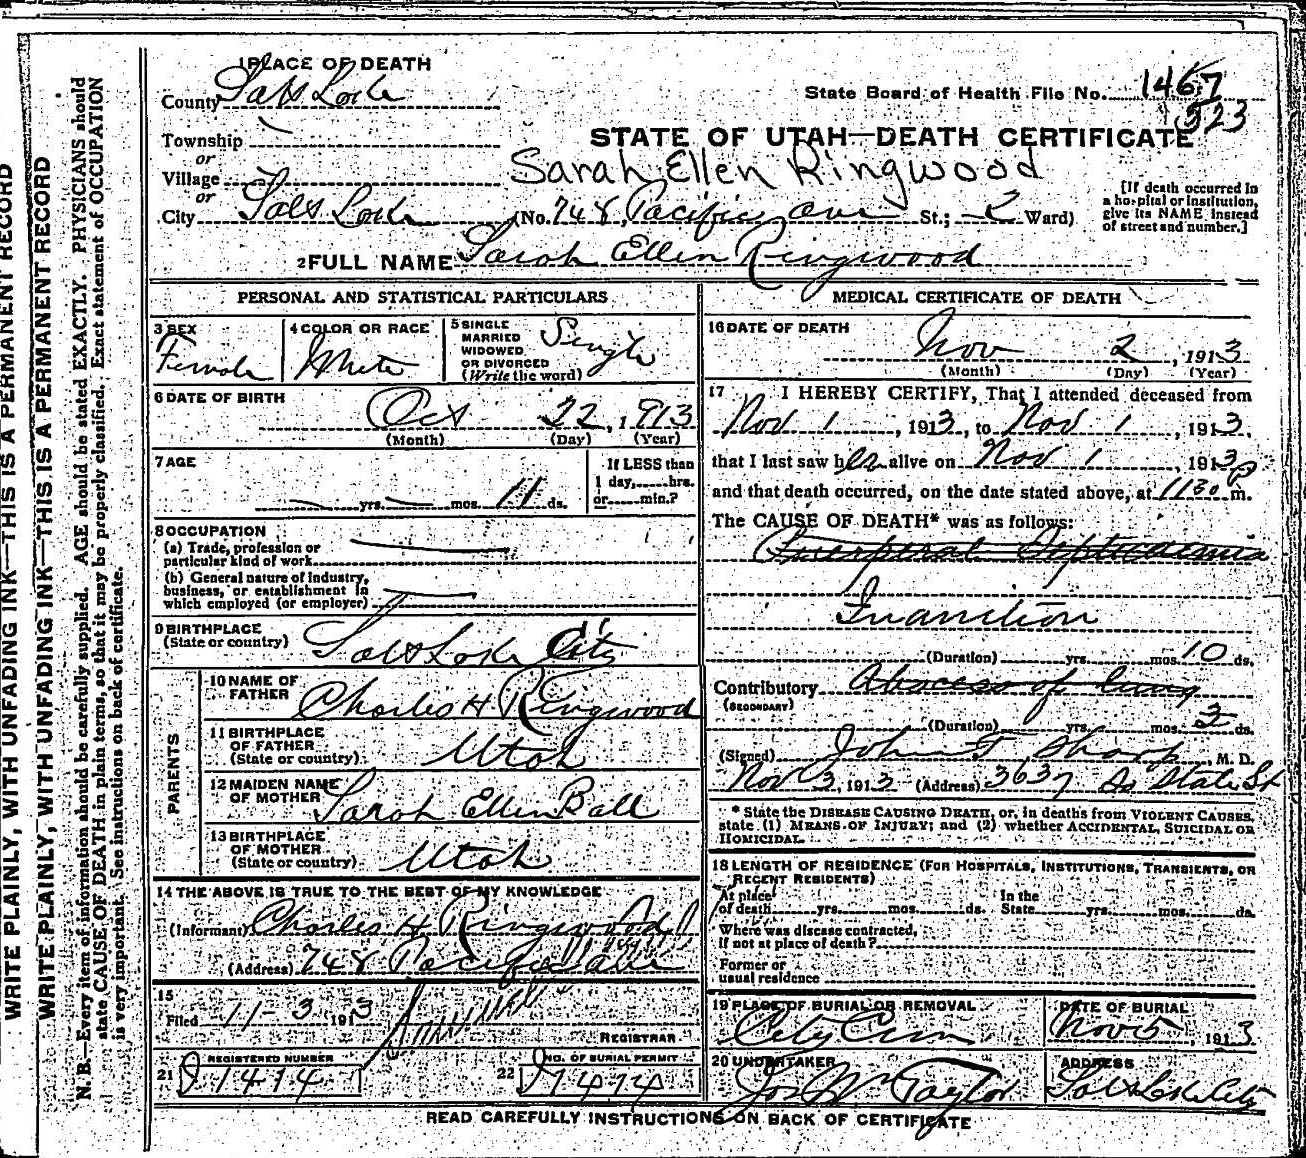 WRITE PLAINLY, WITH UNFADING INK—THIS IS A PERMANENT RECORD
WRITE PLAINLY, WITH UNFADING INK—THIS IS A PERMANENT RECORD
N. B.—Every item of information should be carefully supplied. AGE should be stated EXACTLY. PHYSICIANS should
state CAUSE OF DEATH in plain terms, so that it may be properly classified. Exact statement of OCCUPATION
is very important. See instructions on back of certificate.
1 PLACE OF DEATH
County Salt Lake
State Board of Health File No. 1467
523
Township
STATE OF UTAH—DEATH CERTIFICATE
or
Village
Sarah Ellen Ringwood
or
City Salt Lake (No. 748 Pacific ave St.; 2 Ward)
[If death occurred in
a hospital or institution,
give its NAME instead
of street and number.]
2 FULL NAME Sarah Ellen Ringwood
PERSONAL AND STATISTICAL PARTICULARS
3 SEX
Female
4 COLOR OR RACE
White
5 SINGLE
MARRIED
WIDOWED
OR DIVORCED
(Write the word)
Single
6 DATE OF BIRTH
Oct 22, 1913
(Month) (Day) (Year)
7 AGE
yrs. mos. 11 ds.
If LESS than
1 day, hrs.
or min.?
8 OCCUPATION
(a) Trade, profession or
particular kind of work
(b) General nature of industry,
business, or establishment in
which employed (or employer)
9 BIRTHPLACE
(State or country) Salt Lake City
PARENTS
10 NAME OF
FATHER Charles H Ringwood
11 BIRTHPLACE
OF FATHER
(State or country) Utah
12 MAIDEN NAME
OF MOTHER Sarah Ellen Ball
13 BIRTHPLACE
OF MOTHER
(State or country) Utah
14 THE ABOVE IS TRUE TO THE BEST OF MY KNOWLEDGE
(Informant) Charles H. Ringwood
(Address) 748 Pacific ave
15
Filed 11-3 1913
REGISTRAR
21 REGISTERED NUMBER
J 1474
22 NO. OF BURIAL PERMIT
J 1474
MEDICAL CERTIFICATE OF DEATH
16 DATE OF DEATH
Nov 2, 1913
(Month) (Day) (Year)
17 I HEREBY CERTIFY, That I attended deceased from
Nov 1, 1913, to Nov 1, 1913,
that I last saw her alive on Nov 1, 1913
and that death occurred, on the date stated above, at 1130 P m.
The CAUSE OF DEATH* was as follows:
Puerperal Septicaemia
Inanition
(Duration) yrs. mos. 10 ds.
Contributory Abscess of lung
(SECONDARY)
(Duration) yrs. mos. 3 ds.
(Signed) John T Sharp, M. D.
Nov 3, 1913 (Address) 3637 So State St
* State the DISEASE CAUSING DEATH, or, in deaths from VIOLENT CAUSES,
state (1) MEANS OF INJURY; and (2) whether ACCIDENTAL, SUICIDAL OR
HOMICIDAL.
18 LENGTH OF RESIDENCE (FOR HOSPITALS, INSTITUTIONS, TRANSIENTS, OR
RECENT RESIDENTS)
At place
of death yrs. mos. ds.
In the
State yrs. mos. ds.
Where was disease contracted,
if not at place of death?
Former or
usual residence
19 PLACE OF BURIAL OR REMOVAL
City Cem
DATE OF BURIAL
Nov 5, 1913
20 UNDERTAKER
Jos Wm Taylor
ADDRESS
Salt Lake City
READ CAREFULLY INSTRUCTIONS ON BACK OF CERTIFICATE